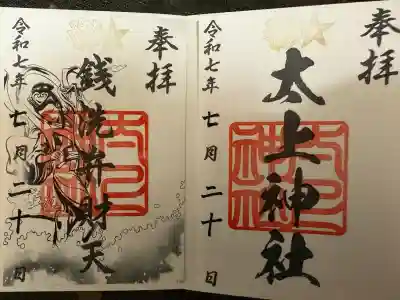 奉拝
太上神社
令和七年七月二十日
奉拝
銭洗弁財天
令和七年七月二十日